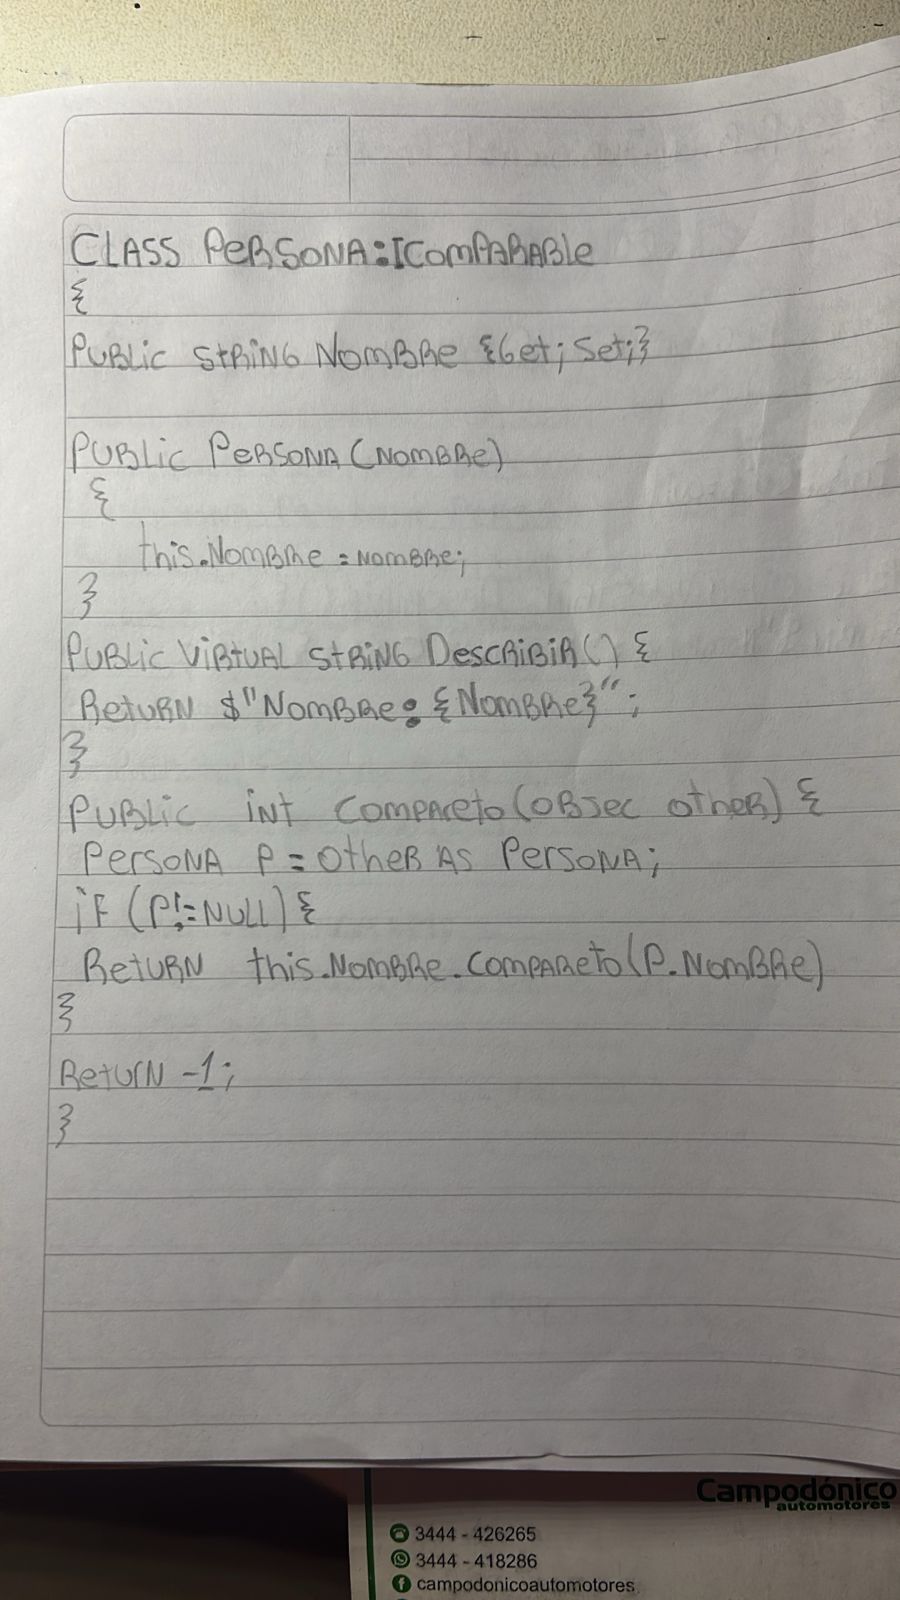 CLASS PERSONA:IComPARABle
{
PUBLic StRiNG NOMBRe {Get; Set;}
PUBLic PeRSONA(NOMBRe)
{
this.NOMBRe = NOMBRe;
}
PUBLic ViRtUAL StRiNG DescRiBiR() {
RetURN $"NOMBRe: {NOMBRe}";
}
PUBLic iNt COMPAReto(OBJec otheR) {
PeRsoNA P = OtheR AS PeRsoNA;
iF (P!=NULL) {
RetURN this.NOMBRe.COMPAReto(P.NOMBRe)
}
RetURN -1;
}
Campodónico
automotores
3444 - 426265
3444 - 418286
campodonicoautomotores